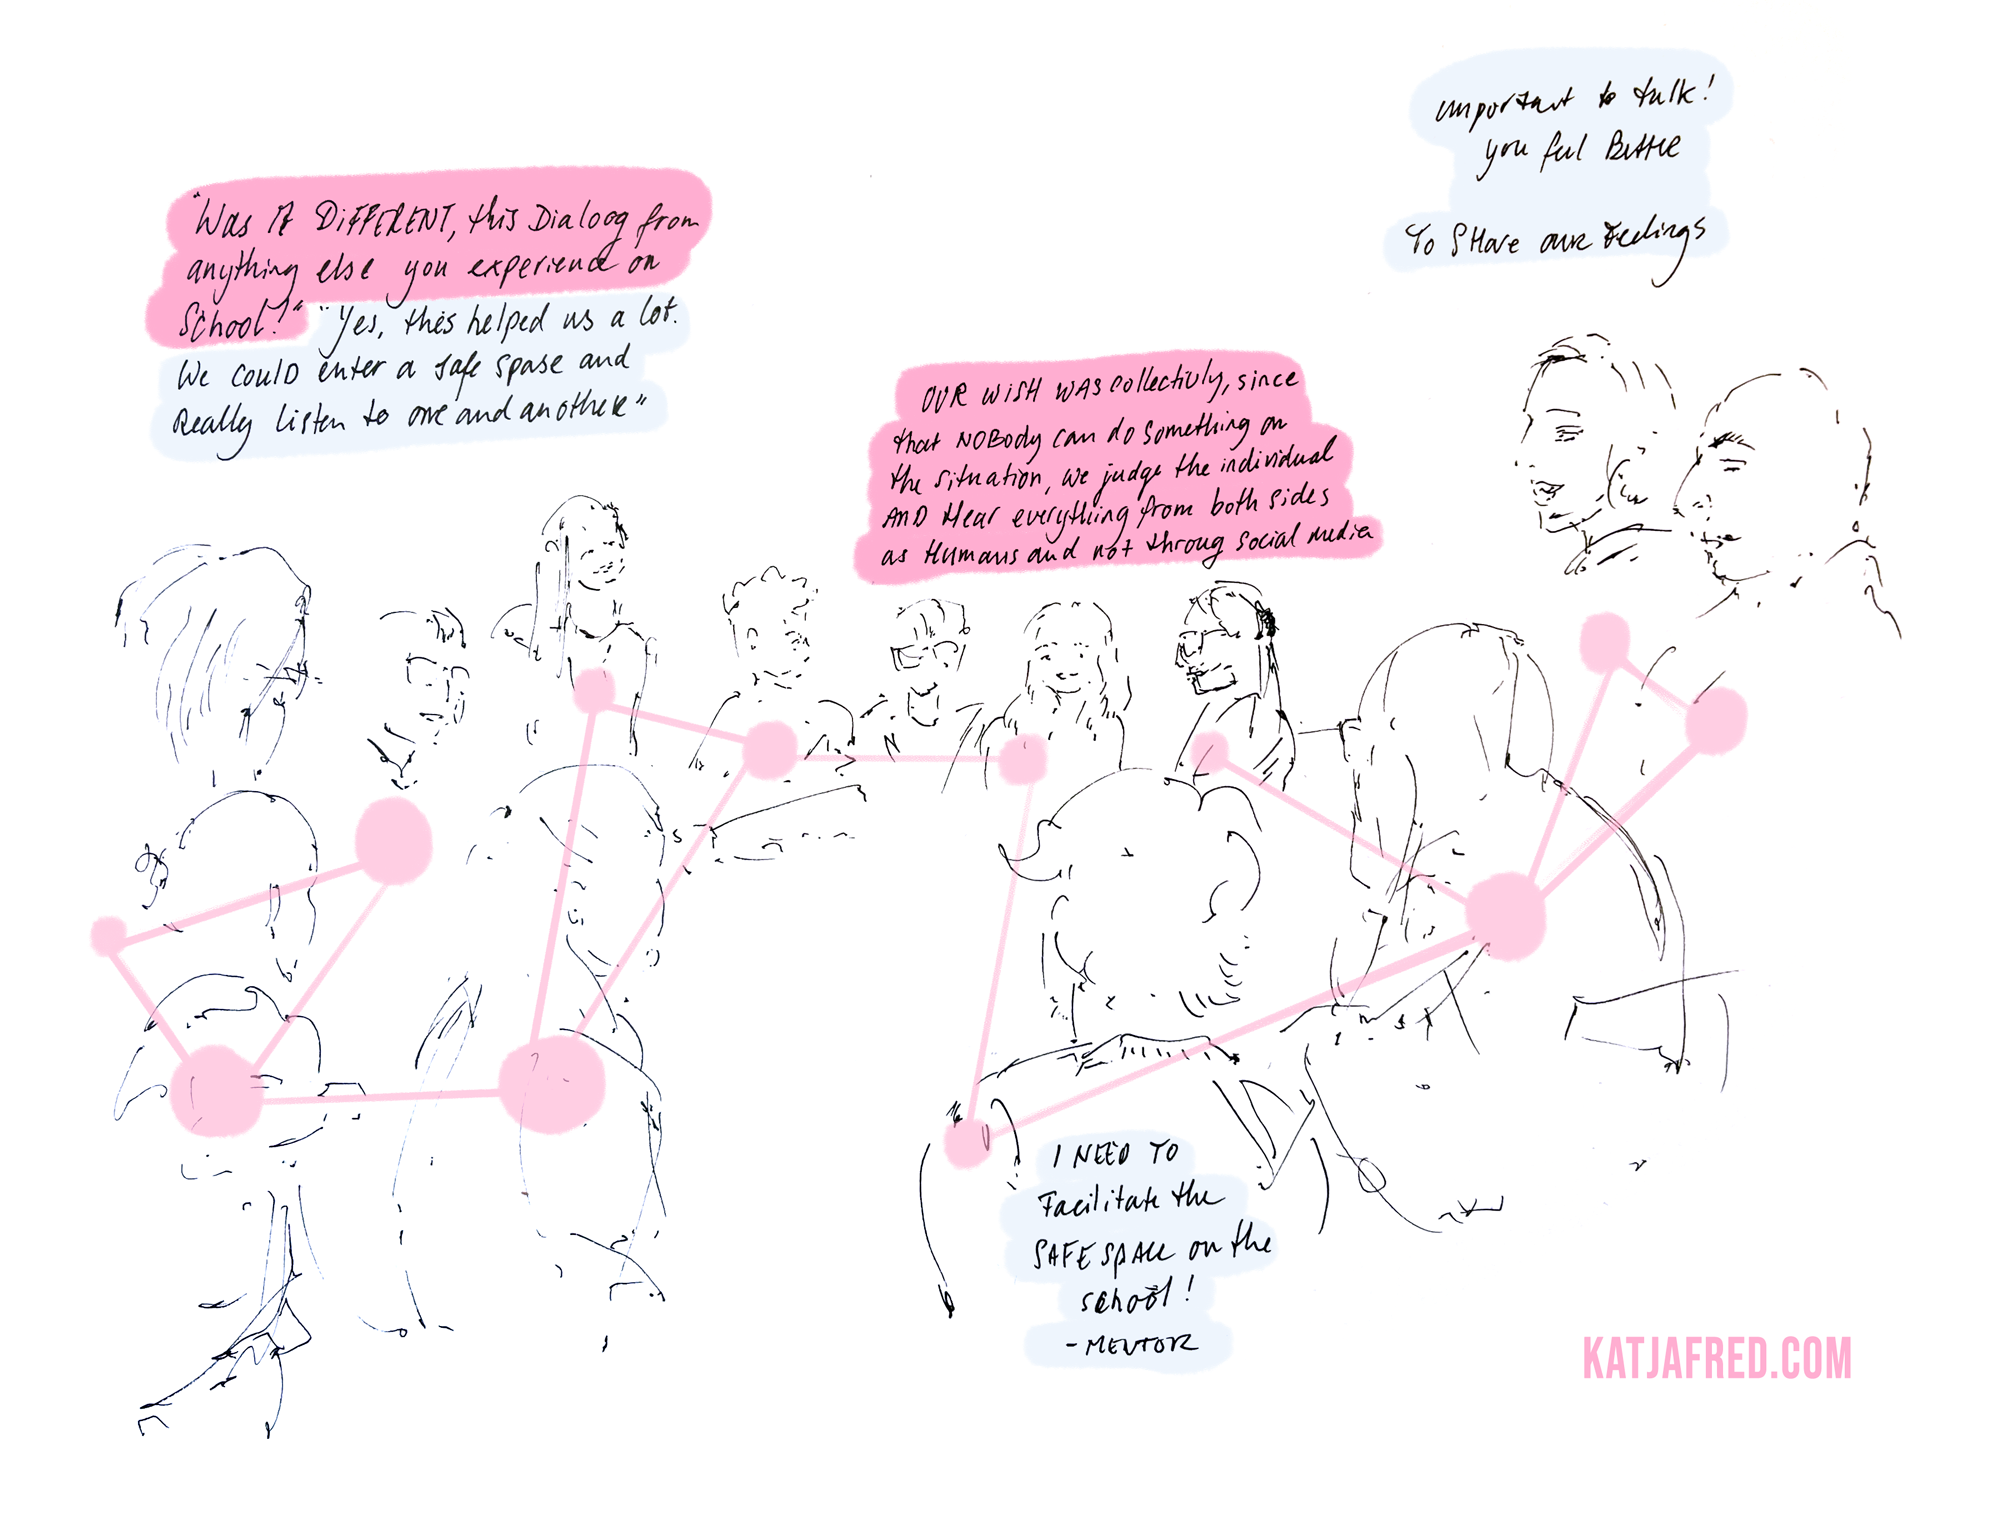 "Was it DIFFERENT, this Dialoog from
anything else you experience on
School!" "Yes, this helped us a lot.
We COULD enter a safe spase and
Really listen to one and another"
important to talk!
you feel Bettee
To SHare our Feelings
OUR WISH WAS collectivly, since
that NOBody can do something on
the situation, we judge the individual
AND Hear everything from both sides
as Humans and not throug social media
I NEED TO
Facilitate the
SAFE SpACE on the
school!
- MENTOR
KATJAFRED.COM